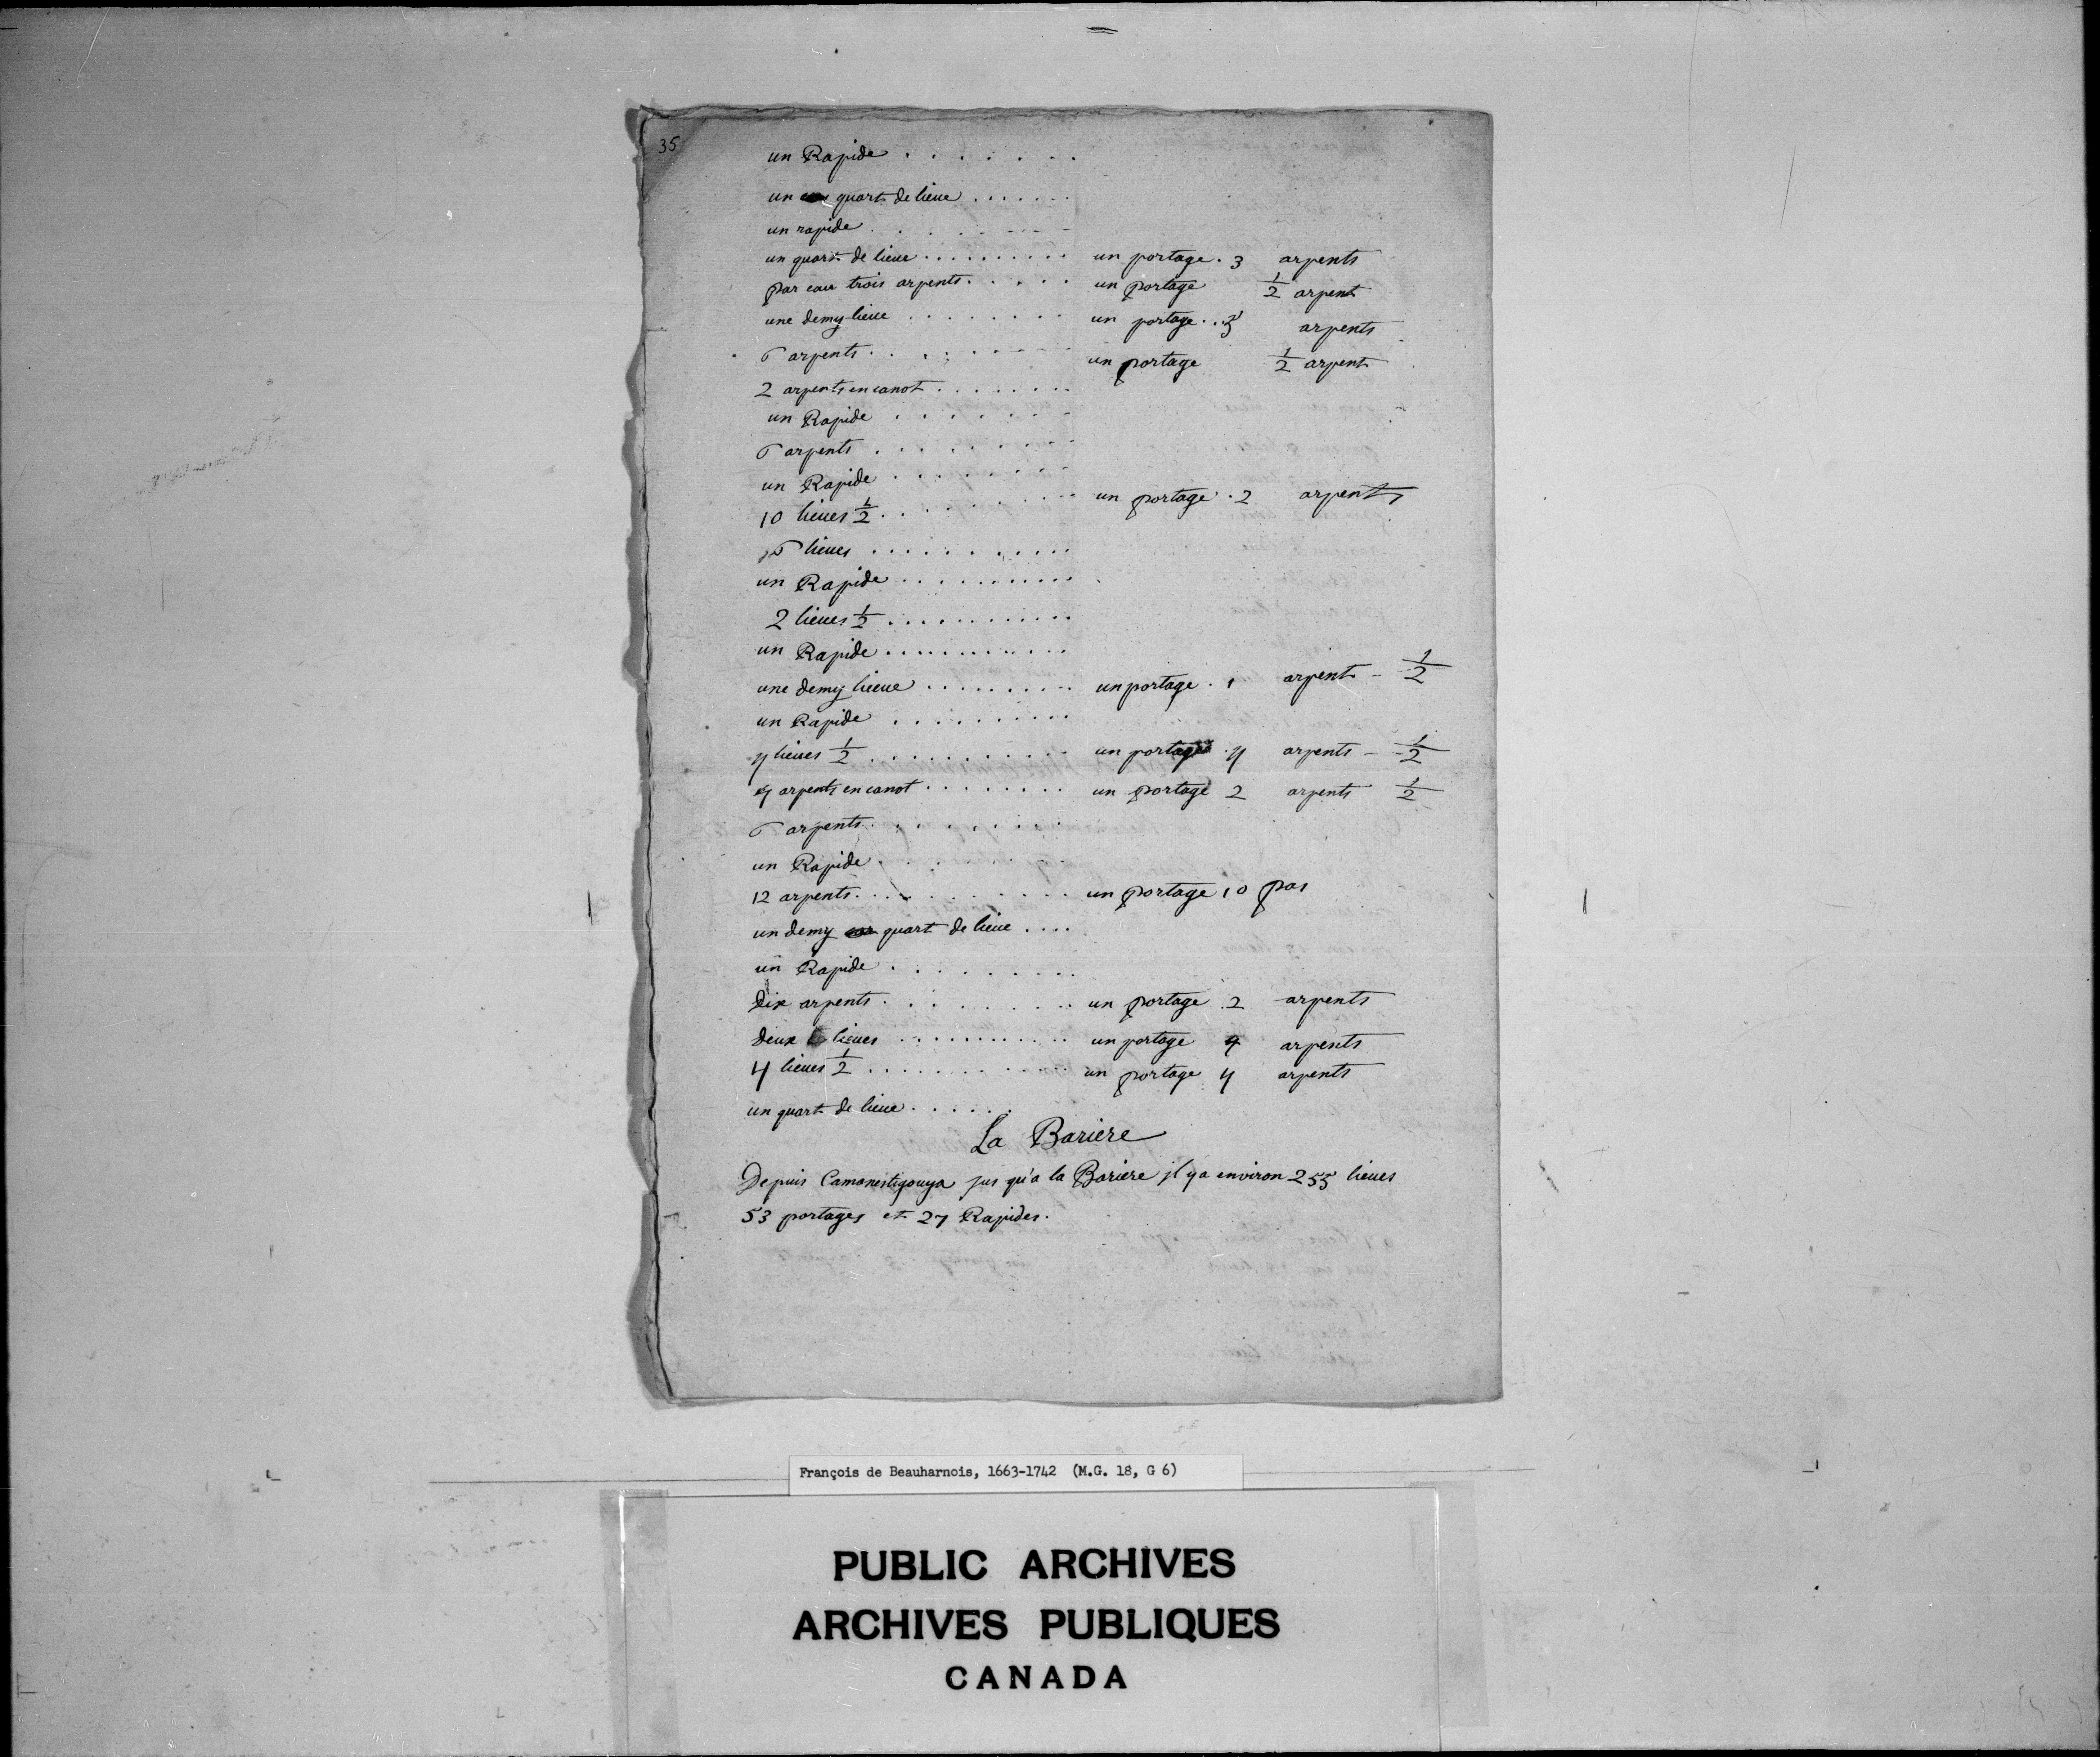 35
un Rapide . . . . . . .
un quart de lieue . . . . . . .
un rapide . . . . . . .
un quart de lieue . . . . . . . . . un portage . 3 arpents
par eau trois arpents . . . . . un portage 1/2 arpent
une demy lieue . . . . . . . . un portage . . 3 arpents
6 arpents . . . . . . . . un portage 1/2 arpent
2 arpents en canot . . . . . . . .
un Rapide . . . . . . .
6 arpents . . . . . . . . .
un Rapide . . . . . . . .
10 lieues 1/2 . . . . . . . . . un portage . 2 arpents
6 lieues . . . . . . . . . . .
un Rapide . . . . . . . . . . .
2 lieues 1/2 . . . . . . . . . . . .
un Rapide . . . . . . . . . . . .
une demy lieue . . . . . . . . . un portage . 1 arpent - 1/2
un Rapide . . . . . . . . . .
4 lieues 1/2 . . . . . . . . . . . un portage . 4 arpents - 1/2
4 arpents en canot . . . . . . . . un portage 2 arpents 1/2
6 arpents . . . . . . . . .
un Rapide . . . . . . . .
12 arpents . . . . . . . . . . . un portage 10 pas
un demy quart de lieue . . . .
un Rapide . . . . . . . . .
dix arpents . . . . . . . . . un portage . 2 arpents
deux lieues . . . . . . . . . . . . un portage 4 arpents
4 lieues 1/2 . . . . . . . . . . . . un portage 4 arpents
un quart de lieue . . . . . .
La Bariere
Depuis Camanestigouya jus qu'a la Bariere jl y a environ 255 lieues
53 portages et 27 Rapides.
François de Beauharnois, 1663-1742 (M.G. 18, G 6)
PUBLIC ARCHIVES
ARCHIVES PUBLIQUES
CANADA